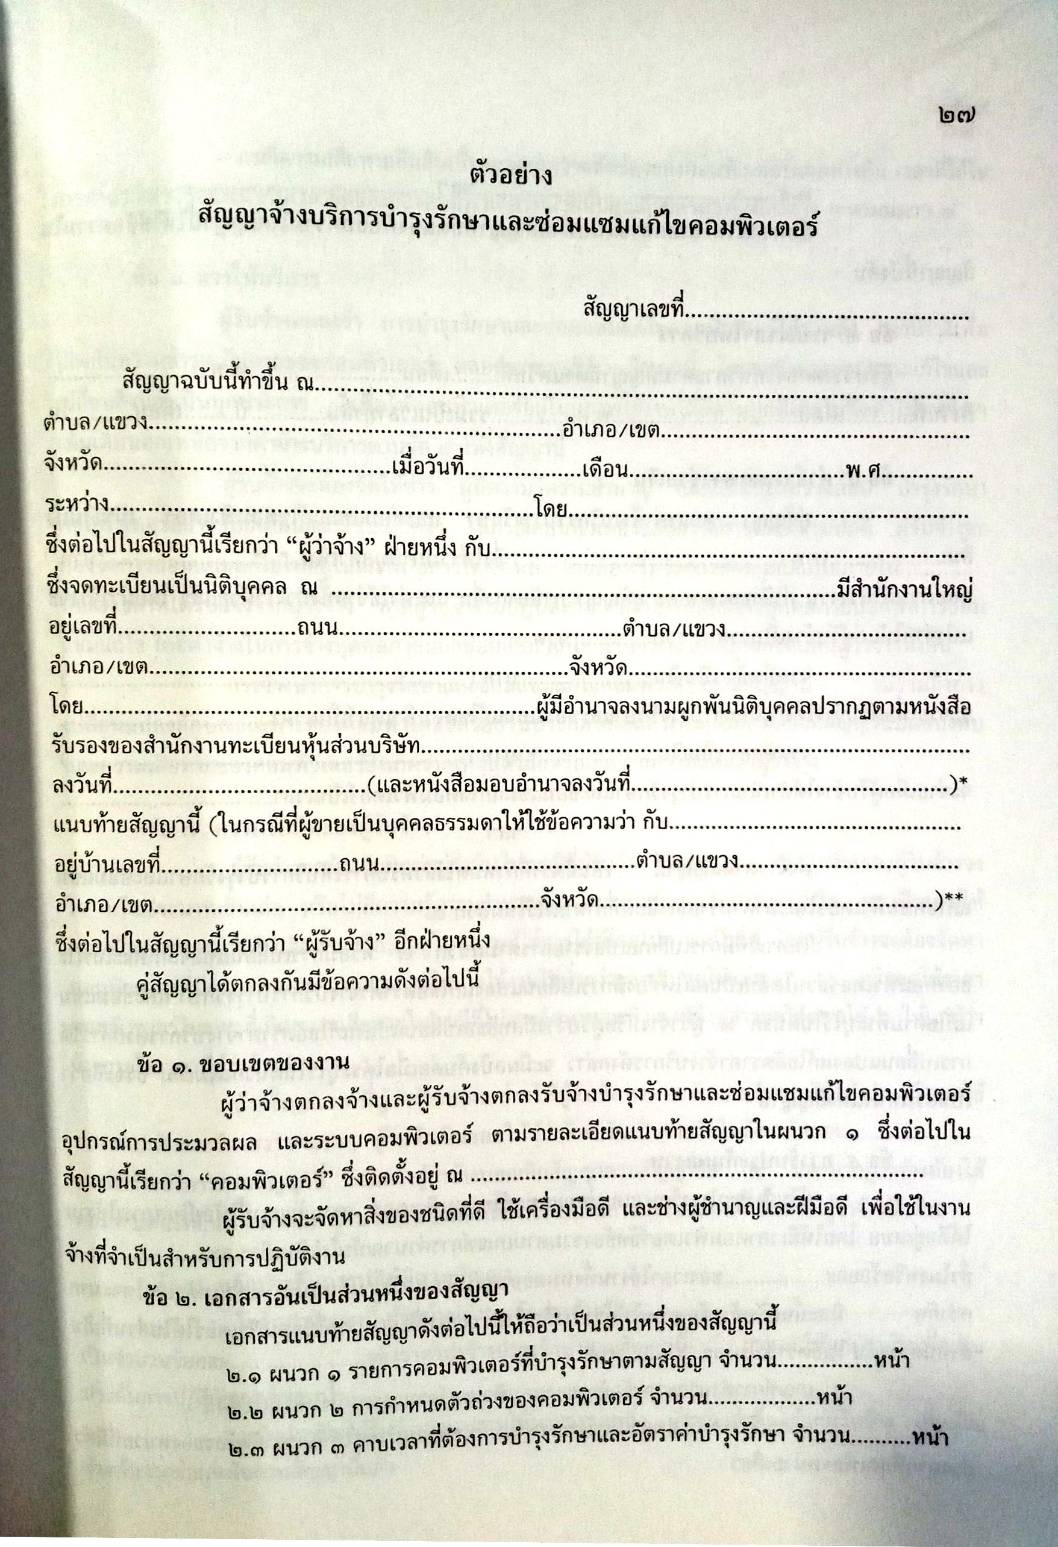 ๒๗
ตัวอย่าง
สัญญาจ้างบริการบำรุงรักษาและซ่อมแซมแก้ไขคอมพิวเตอร์
สัญญาเลขที่..........................................
สัญญาฉบับนี้ทำขึ้น ณ..........................................................................................
ตำบล/แขวง.............................................................อำเภอ/เขต..............................................
จังหวัด...........................................เมื่อวันที่.................เดือน................................พ.ศ..............
ระหว่าง...............................................................โดย............................................................
ซึ่งต่อไปในสัญญานี้เรียกว่า “ผู้ว่าจ้าง” ฝ่ายหนึ่ง กับ......................................................................
ซึ่งจดทะเบียนเป็นนิติบุคคล ณ ...........................................................................มีสำนักงานใหญ่
อยู่เลขที่..........................ถนน..........................................ตำบล/แขวง....................................
อำเภอ/เขต...............................................................จังหวัด...................................................
โดย...................................................................ผู้มีอำนาจลงนามผูกพันนิติบุคคลปรากฏตามหนังสือ
รับรองของสำนักงานทะเบียนหุ้นส่วนบริษัท..................................................................................
ลงวันที่......................................(และหนังสือมอบอำนาจลงวันที่...............................................)*
แนบท้ายสัญญานี้ (ในกรณีที่ผู้ขายเป็นบุคคลธรรมดาให้ใช้ข้อความว่า กับ...........................................
อยู่บ้านเลขที่..........................ถนน......................................ตำบล/แขวง.................................
อำเภอ/เขต..........................................................จังหวัด..................................................)**
ซึ่งต่อไปในสัญญานี้เรียกว่า “ผู้รับจ้าง” อีกฝ่ายหนึ่ง
คู่สัญญาได้ตกลงกันมีข้อความดังต่อไปนี้
ข้อ ๑. ขอบเขตของงาน
ผู้ว่าจ้างตกลงจ้างและผู้รับจ้างตกลงรับจ้างบำรุงรักษาและซ่อมแซมแก้ไขคอมพิวเตอร์
อุปกรณ์การประมวลผล และระบบคอมพิวเตอร์ ตามรายละเอียดแนบท้ายสัญญาในผนวก ๑ ซึ่งต่อไปใน
สัญญานี้เรียกว่า “คอมพิวเตอร์” ซึ่งติดตั้งอยู่ ณ ....................................................................
ผู้รับจ้างจะจัดหาสิ่งของชนิดที่ดี ใช้เครื่องมือดี และช่างผู้ชำนาญและฝีมือดี เพื่อใช้ในงาน
จ้างที่จำเป็นสำหรับการปฏิบัติงาน
ข้อ ๒. เอกสารอันเป็นส่วนหนึ่งของสัญญา
เอกสารแนบท้ายสัญญาดังต่อไปนี้ให้ถือว่าเป็นส่วนหนึ่งของสัญญานี้
๒.๑ ผนวก ๑ รายการคอมพิวเตอร์ที่บำรุงรักษาตามสัญญา จำนวน................หน้า
๒.๒ ผนวก ๒ การกำหนดตัวถ่วงของคอมพิวเตอร์ จำนวน..................หน้า
๒.๓ ผนวก ๓ คาบเวลาที่ต้องการบำรุงรักษาและอัตราค่าบำรุงรักษา จำนวน..........หน้า